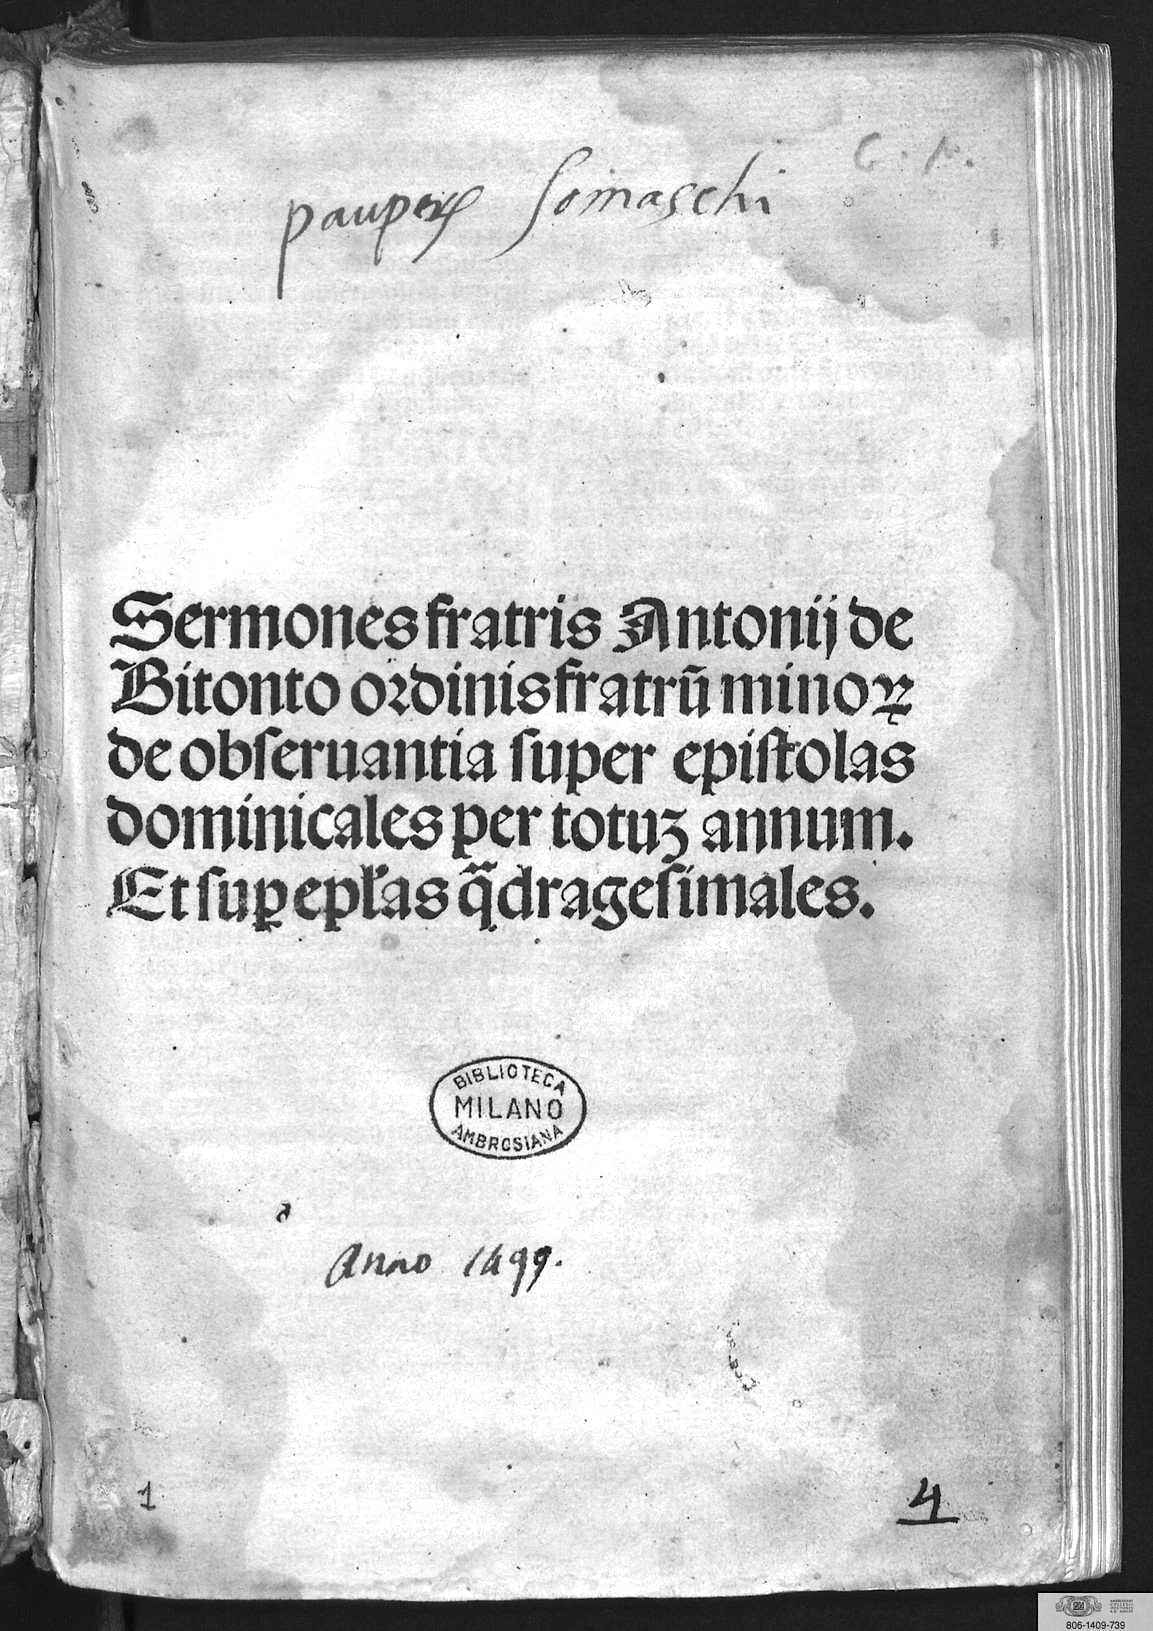 G. A.
pauperꝝ Somaschi
Sermones fratris Antonij de
Bitonto ordinis fratrū minoꝝ
de obseruantia super epistolas
dominicales per totuꝫ annum.
Et suꝑ epłas q̄dragesimales.
BIBLIOTECA
MILANO
AMBROSIANA
Anno 1499.
1
4
806-1409-739